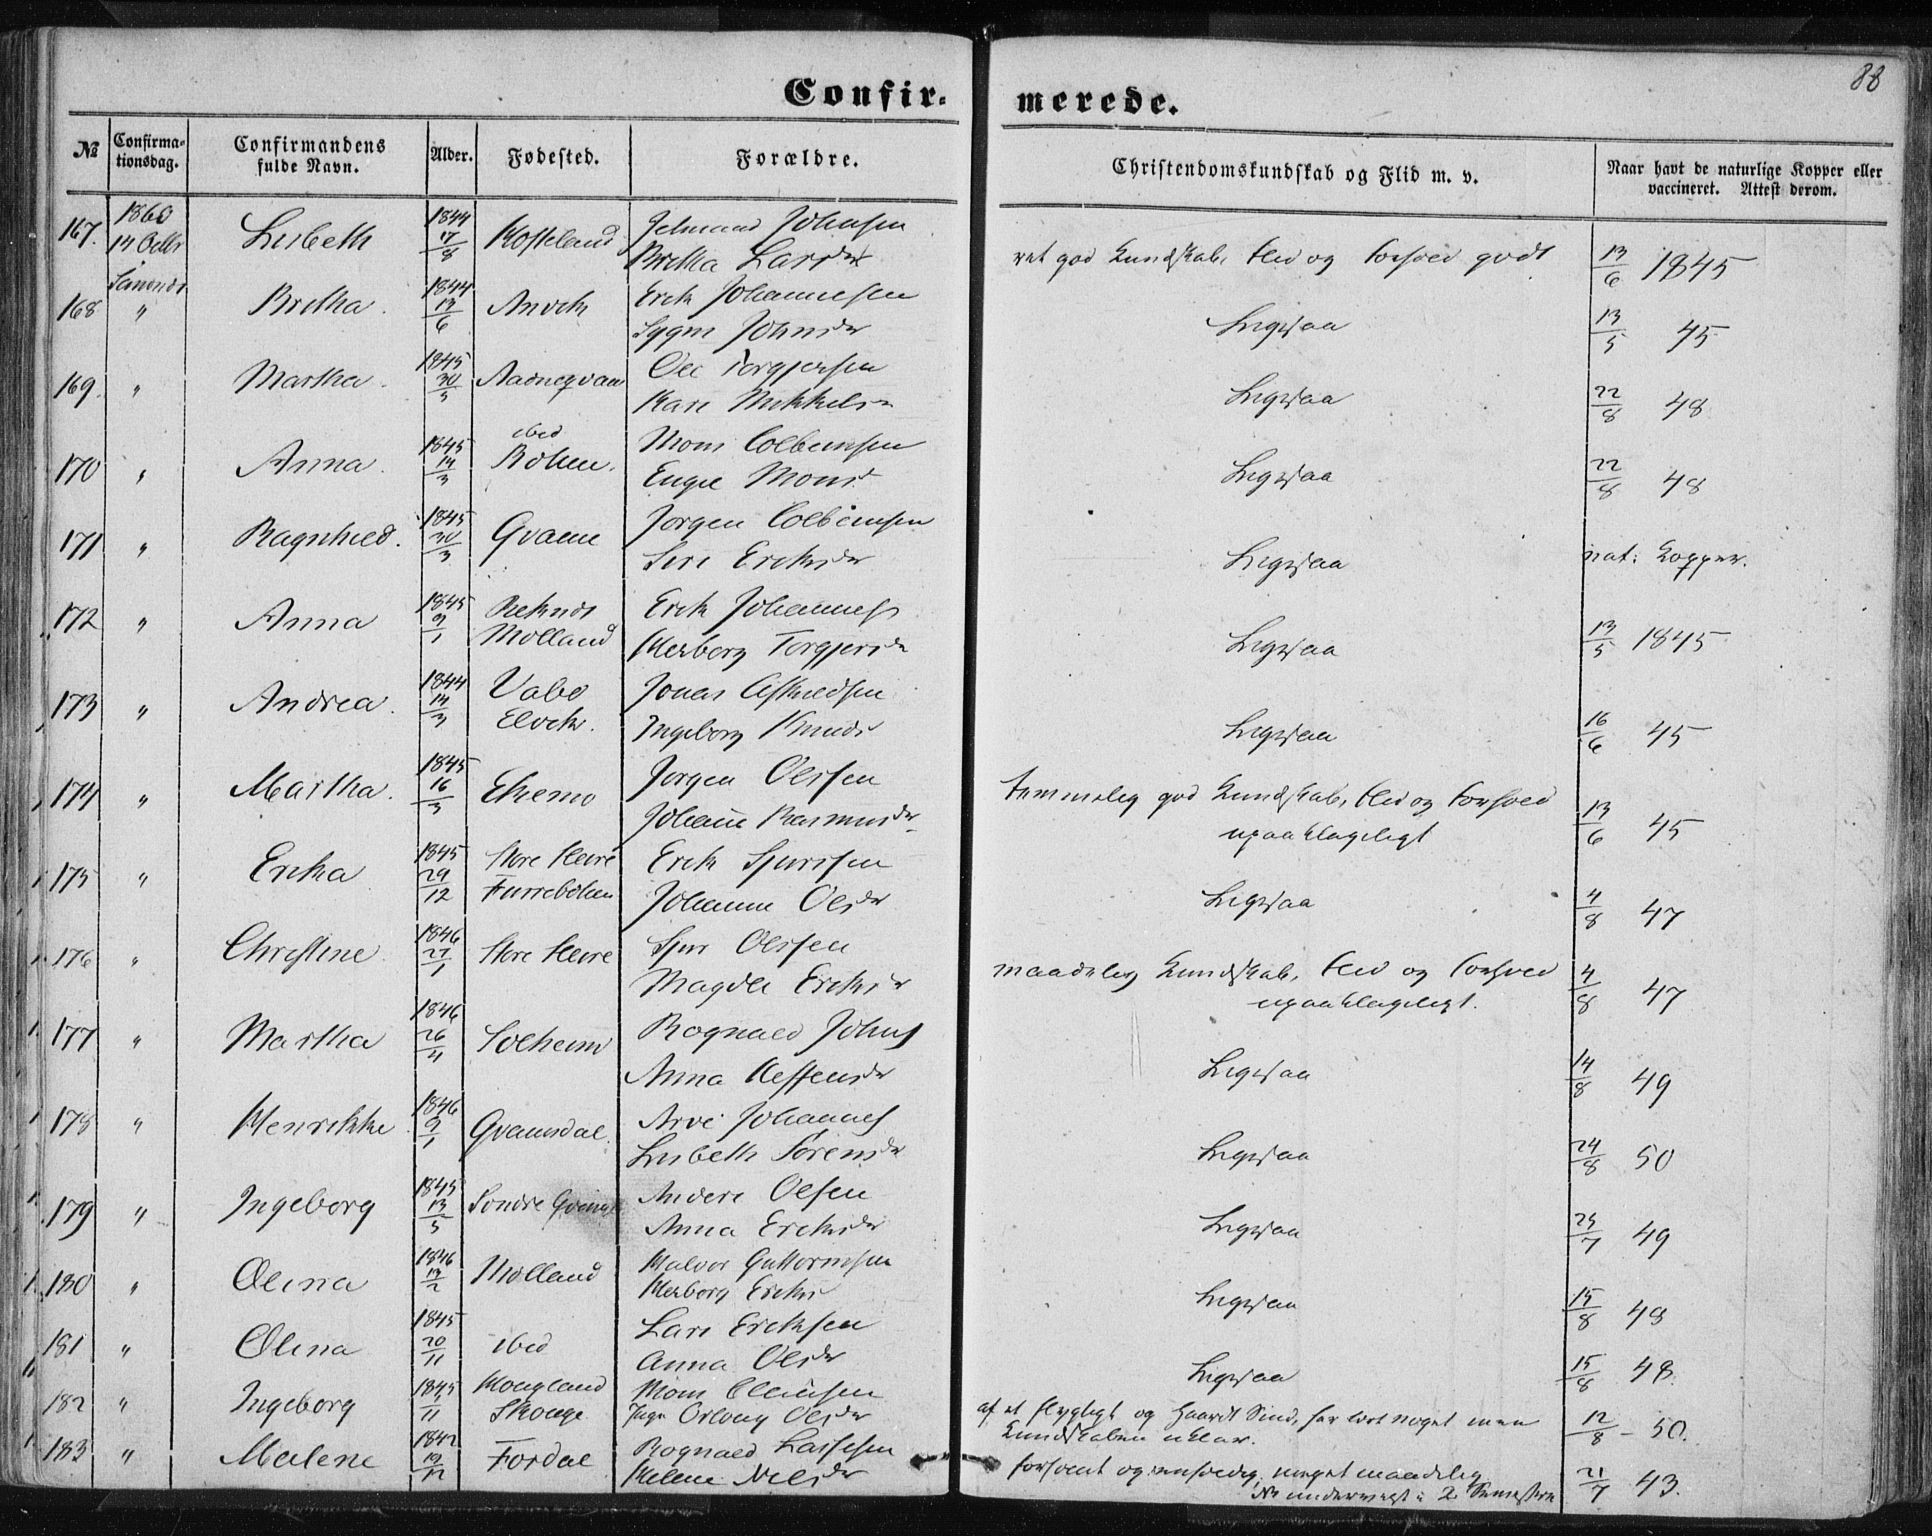 88
Confir- merede.
№ Confirma-tionsdag. Confirmandens fulde Navn. Alder. Fødested. Forældre. Christendomskundskab og Flid m. v. Naar havt de naturlige Kopper eller vaccineret. Attest derom.
167. 1860 14 Octbr Lisbeth 1844 17/8 Jelmund Johnsen
Britha Larsdr ret god Kundskab, Flid og Forhold godt 13/6 1845
168 " Britha. 1844 13/6 Andvik Erik Johannesen
Johnsdr Ligesaa 13/5 45
169. " Martha. 1845 30/3 Ole Torgjersen
Kari Mikkelsdr Ligesaa 22/8 48
170 " Anna. 1845 14/3 ibid Bolien. Mons Colbeinsen
Engel Monsd Ligesaa 22/8 48
171 " Ragnhild. 1845 30/3 Qvame Jørgen Colbeinsen
Siri Eriksdr Ligesaa nat: Kopper.
172 " Anna 1845 9/1 Molland Erik Johannes
Herborg Torgjersdr Ligesaa 13/5 1845
173 " Andrea. 1844 14/3 Vabø Elvik. Jonas
Ingeborg Knuds Ligesaa 16/6 45
174 " Martha. 1845 16/3 Ekemo Jørgen Olssen
Johanne Rasmusdr temmelig god Kundskab, Flid og Forhold
upaaklageligt 13/6 45
175 " Erika 1845 29/12 Store Heire Furrebolien Erik Sjurssen
Johanne Olsdr Ligesaa 4/8 47
176 " Christine. 1846 27/1 Store Heire Sjur Olssen
Magdli Eriksdr maadelig Kundskab, Flid og Forhold
upaaklageligt. 4/8 47
177 " Martha 1846 26/4 Solheim Rognald Johns
Anna Steffensdr Ligesaa 14/8 49
178 " Henrikke. 1846 9/1 Qvamsdal. Arve Johannes
Lisbeth Sørensdr Ligesaa 24/8 50
179 " Ingeborg 1845 13/5 Søndre Anders Olsen
Anna Eriksdr Ligesaa 25/7 49
180 " Olina 1846 13/2 Mølland Halvor Guttormsen
Herborg Eriks Ligesaa 15/8 48
181 " Olina 1845 20/11 ibid Lars Eriksen
Anna Olsdr Ligesaa 15/8 48
182 " Ingeborg 1845 1/11 Hougland Skouge Mons
Olsdr af et flygtigt og haardt Sind, har lært noget men
Kundskaben uklar. 12/8 - 50.
183 " Malene 1842 Fordal Rognald Lassesen
Helene Nilsdr forsømt og uvidende, meget maadelig
2 Semestre 21/7 43.